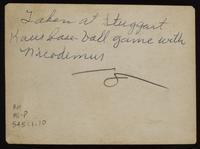 Taken at Stuggart
Kans base-ball game with
Nicodemus
RH
MS-P
545:1.10